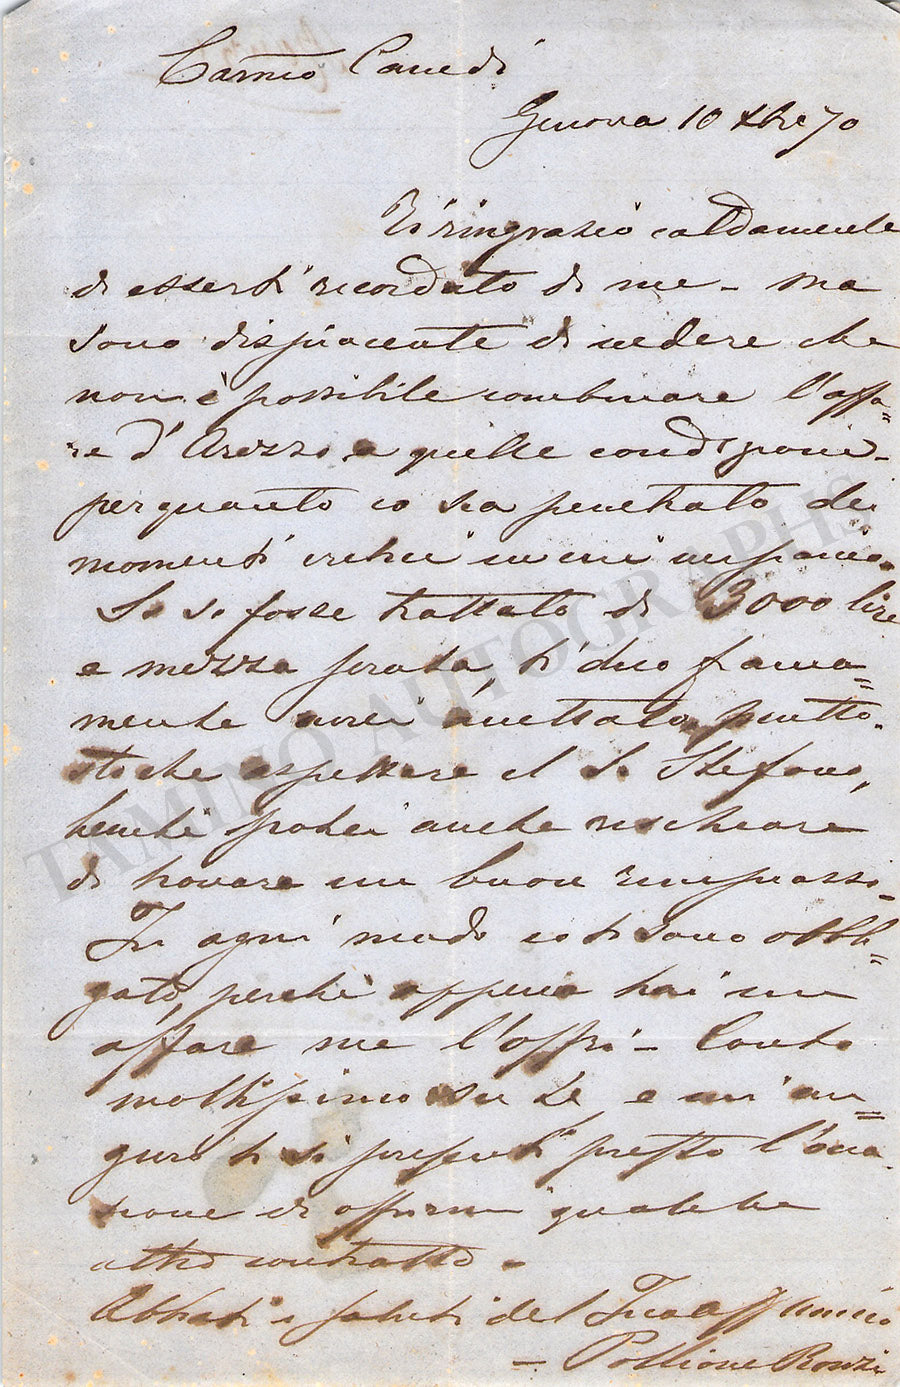 Carmio Canedi
Genova 10 Xbre 70
Ti ringrazio caldamente
di esserti ricordato di me - ma
sono dispiacente di vedere che
non è possibile combinare l'affa=
re d'Arezzo a quelle condizioni -
per quanto io sia penetrato dei
momenti critici in cui
Se si fosse trattato di 3000 lire
e mezza serata, ti dico franca=
mente avrei accettato piutto-
stoche aspettare il S. Stefano,
benchè potrei anche rischiare
di trovare un buon rimpiazzo -
In ogni modo io ti sono obbli=
gato, perchè appena hai un
affare me l'offri - Conto
moltissimo su te e mi au=
guro ti si presenti presto l'occa-
sione di offrirmi qualche
altro contratto -
Abbiati i saluti del Tuo aff Amico
- Pollione Ronzi
TAMINO AUTOGRAPHS